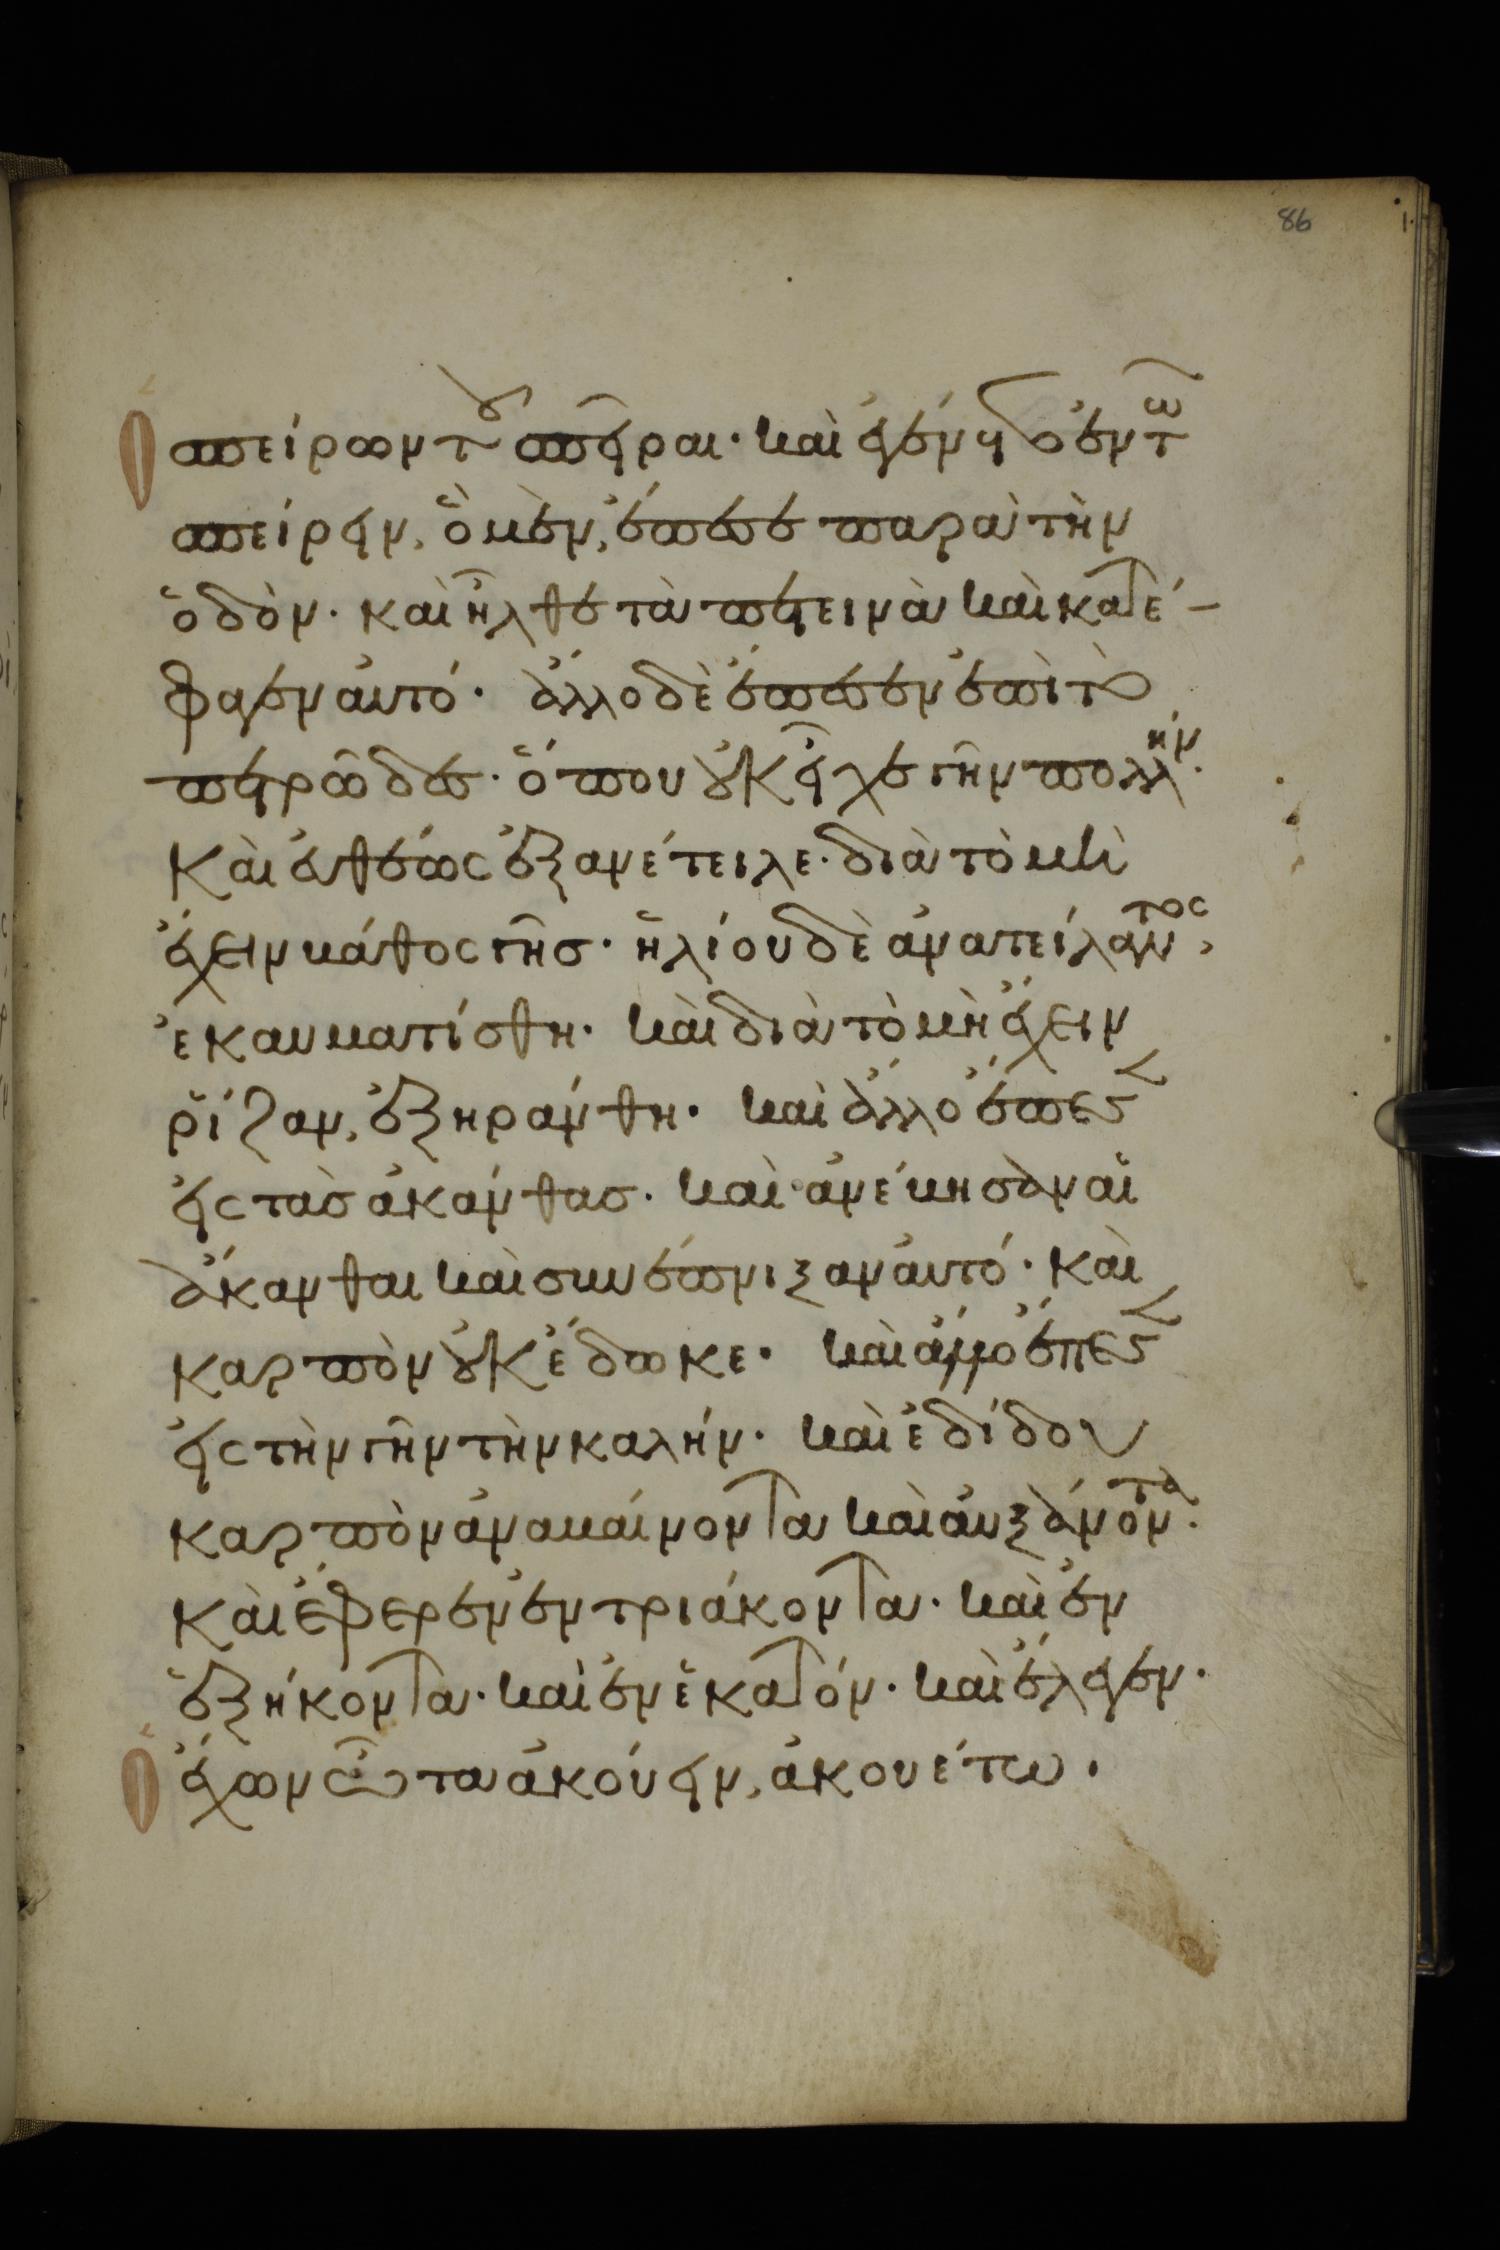 86
1.
Ὁ σπείρων τοῦ σπεῖραι· καὶ ἐγένετο ἐν τῶ
σπείρειν, ὃ μὲν, ἔπεσε παρὰ τὴν
ὁδὸν· καὶ ἦλθε τὰ πετεινὰ καὶ κατέ-
φαγεν αὐτό· ἄλλο δὲ ἔπεσεν ἐπὶ τὸ
πετρῶδες· ὅπου οὐκ εἶχε γῆν πολλήν·
Καὶ εὐθέως ἐξανέτειλε· διὰ τὸ μὴ
ἔχειν βάθος γῆσ· ἡλίου δὲ ἀνατείλαντος,
ἐκαυματίσθη· καὶ διὰ τὸ μὴ ἔχειν
ῥίζαν, ἐξηράνθη· καὶ ἄλλο ἔπεσεν
εἰς τὰσ ἀκάνθασ· καὶ ἀνέβησαν αἱ
ἄκανθαι καὶ συνέπνιξαν αὐτό· καὶ
καρπὸν οὐκ ἔδωκε· καὶ ἄλλο ἔπεσεν
εἰς τὴν γῆν τὴν καλήν· καὶ ἐδίδου
καρπὸν ἀναβαίνοντα καὶ αὐξάνοντα·
Καὶ ἔφερεν ἐν τριάκοντα· καὶ ἐν
ἑξήκοντα· καὶ ἐν ἑκατόν· καὶ ἔλεγεν·
Ὁ ἔχων ὦτα ἀκούειν, ἀκουέτω·